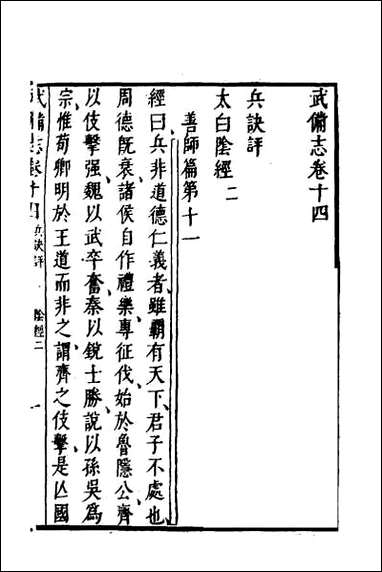 武備志卷十四
兵訣評
太白陰經二
善師篇第十一
經曰兵非道德仁義者雖霸有天下君子不處也
周德既衰諸侯自作禮樂專征伐始於魯隱公齊
以伎擊强魏以武卒奮秦以銳士勝說以孫吳為
宗惟荀卿明於王道而非之謂齊之伎擊是亾國
武備志卷十四 兵訣評 陰經二 一